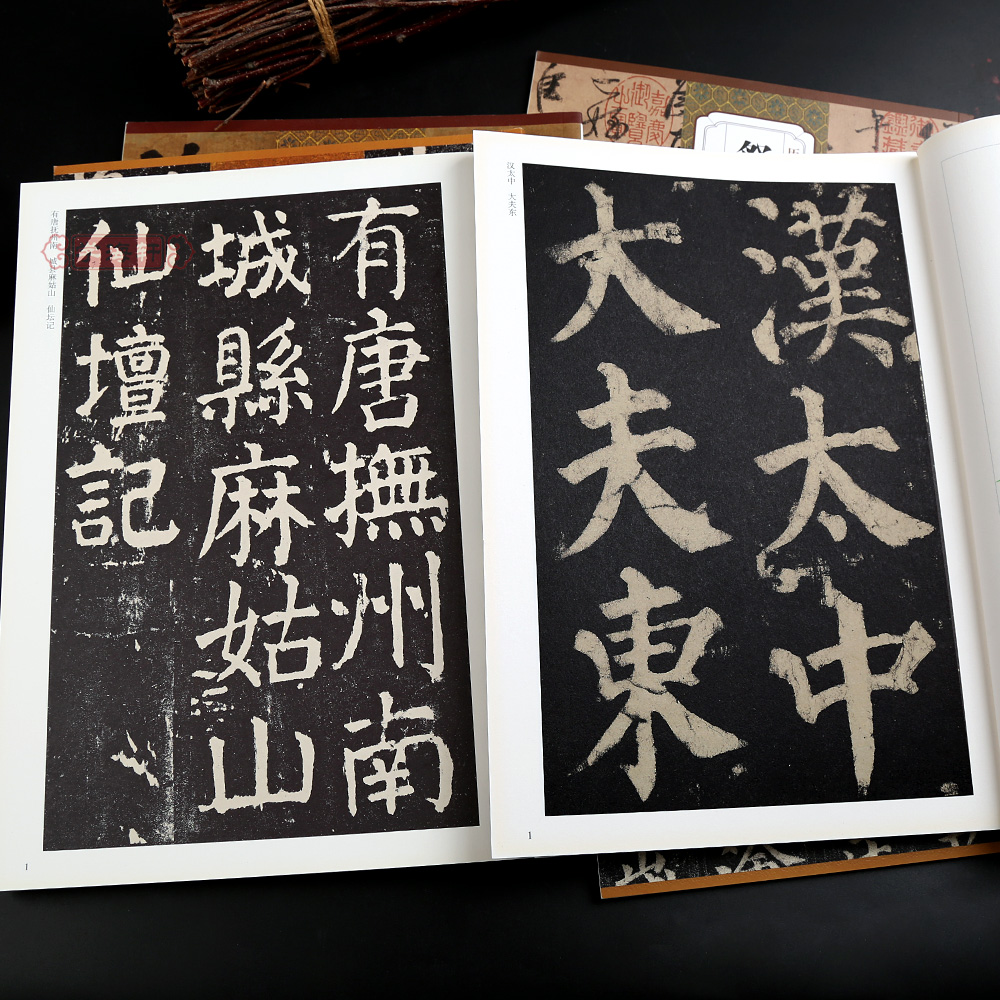 有唐撫州南
城縣麻姑山
仙壇記
有唐抚州南 城县麻姑山 仙坛记
1
漢太中
大夫东
汉太中 大夫东
1